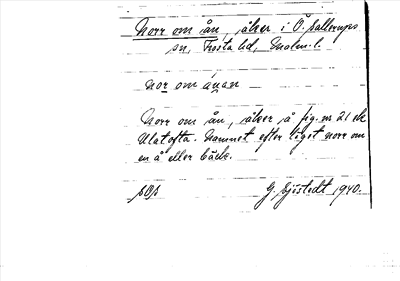 Norr om ån, åker i Ö. Sallerups
sn, Frosta hd, Malm. l.
nor om ånan
Norr om ån, åker å fig. nr 21 ek
Ulatofta. Namnet efter läget norr om
en å eller bäck.
G. Sjöstedt 1940.